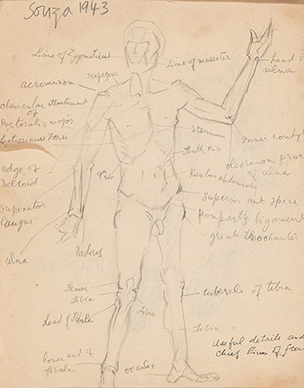 Souza 1943
Line of Zygomaticus
Line of masseter
head of
ulna
acromion
clavicular attachment
of
Pectoralis major
Sternum
inner condyle
Tenth rib
olecranon process
of ulna
edge of
Deltoid
9th rib
Rectus abdominis
Superior ant spine
Supinator
longus
Pouparts ligament
great trochanter
ulna
radius
Femur
tibia
tubercle of tibia
head of fibula
tibia
Tibia
useful details and
chief lines of
lower end of
fibula